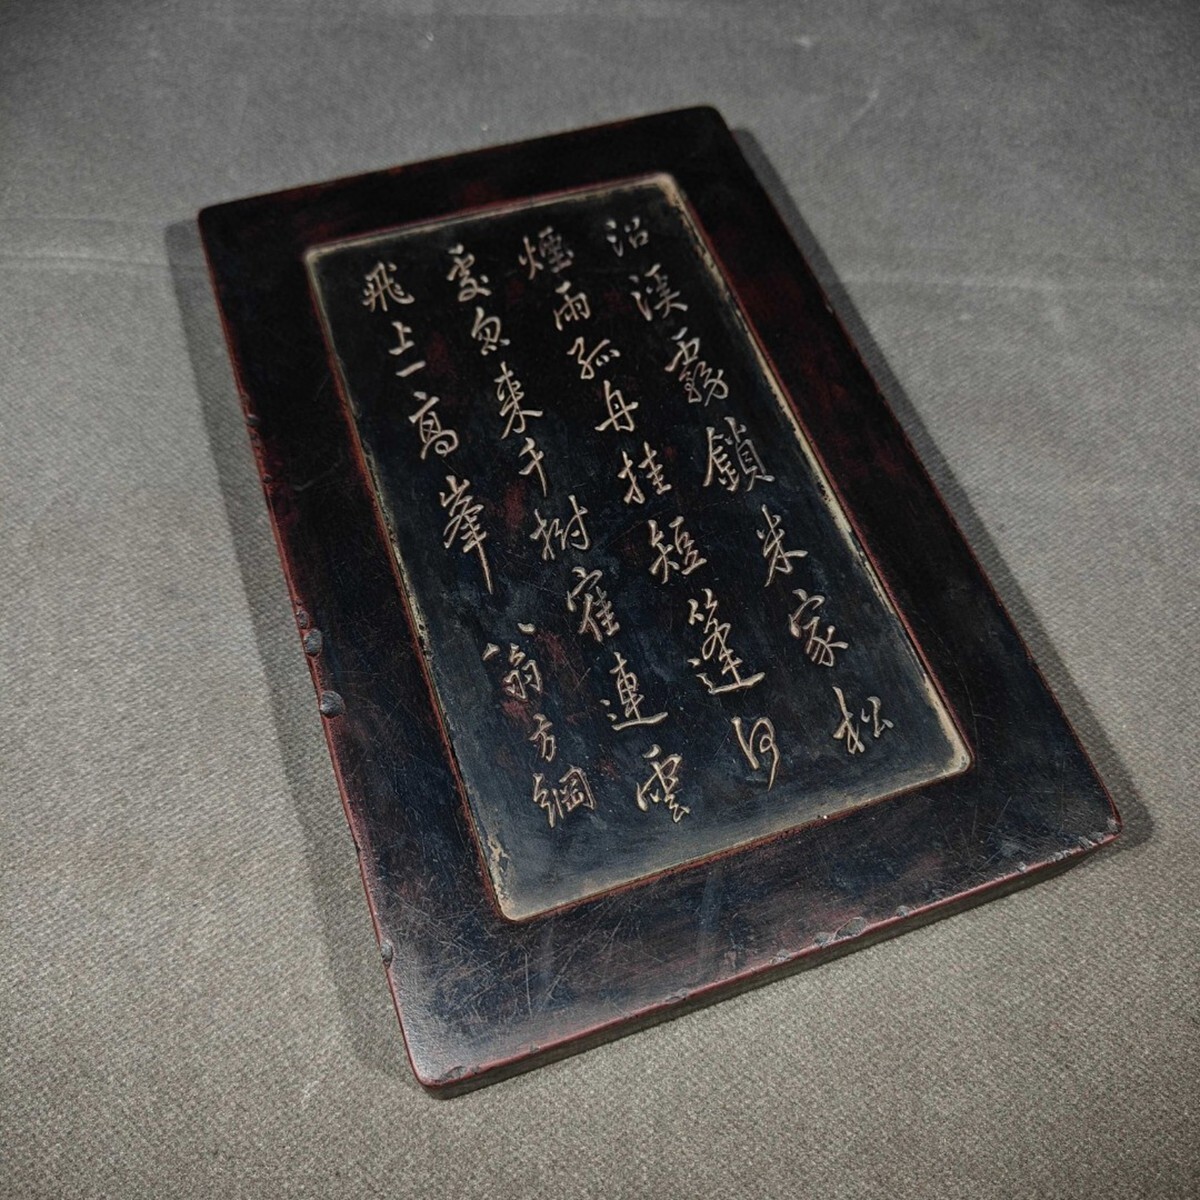 沿溪霧鎖米家松
煙雨孤舟挂短篷何
處忽來千樹崔連雲
飛上一高峯
翁方綱